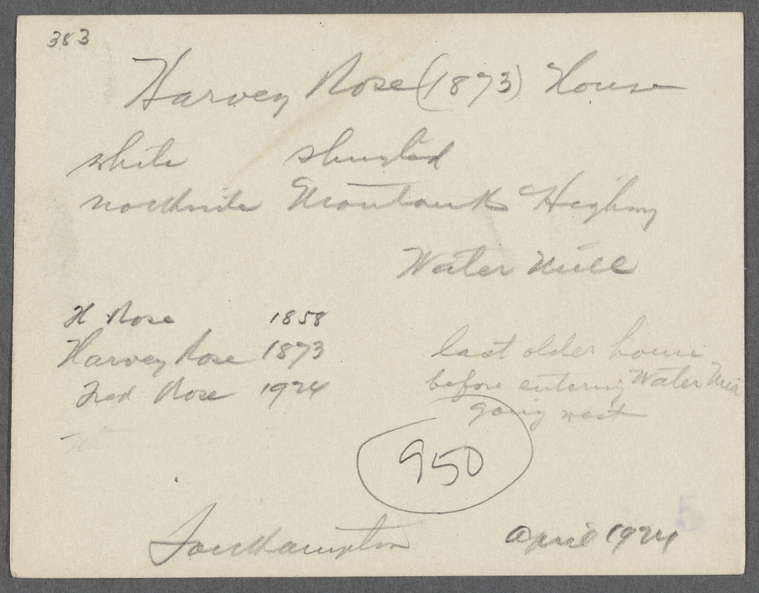 383
Harvey Rose (1873) House
white shingled
northside Montauk Highway
Water Mill
H Rose 1858
Harvey Rose 1873
Fred Rose 1924
last older house
before entering Water Mill
going west
950
5
Southampton April 1924